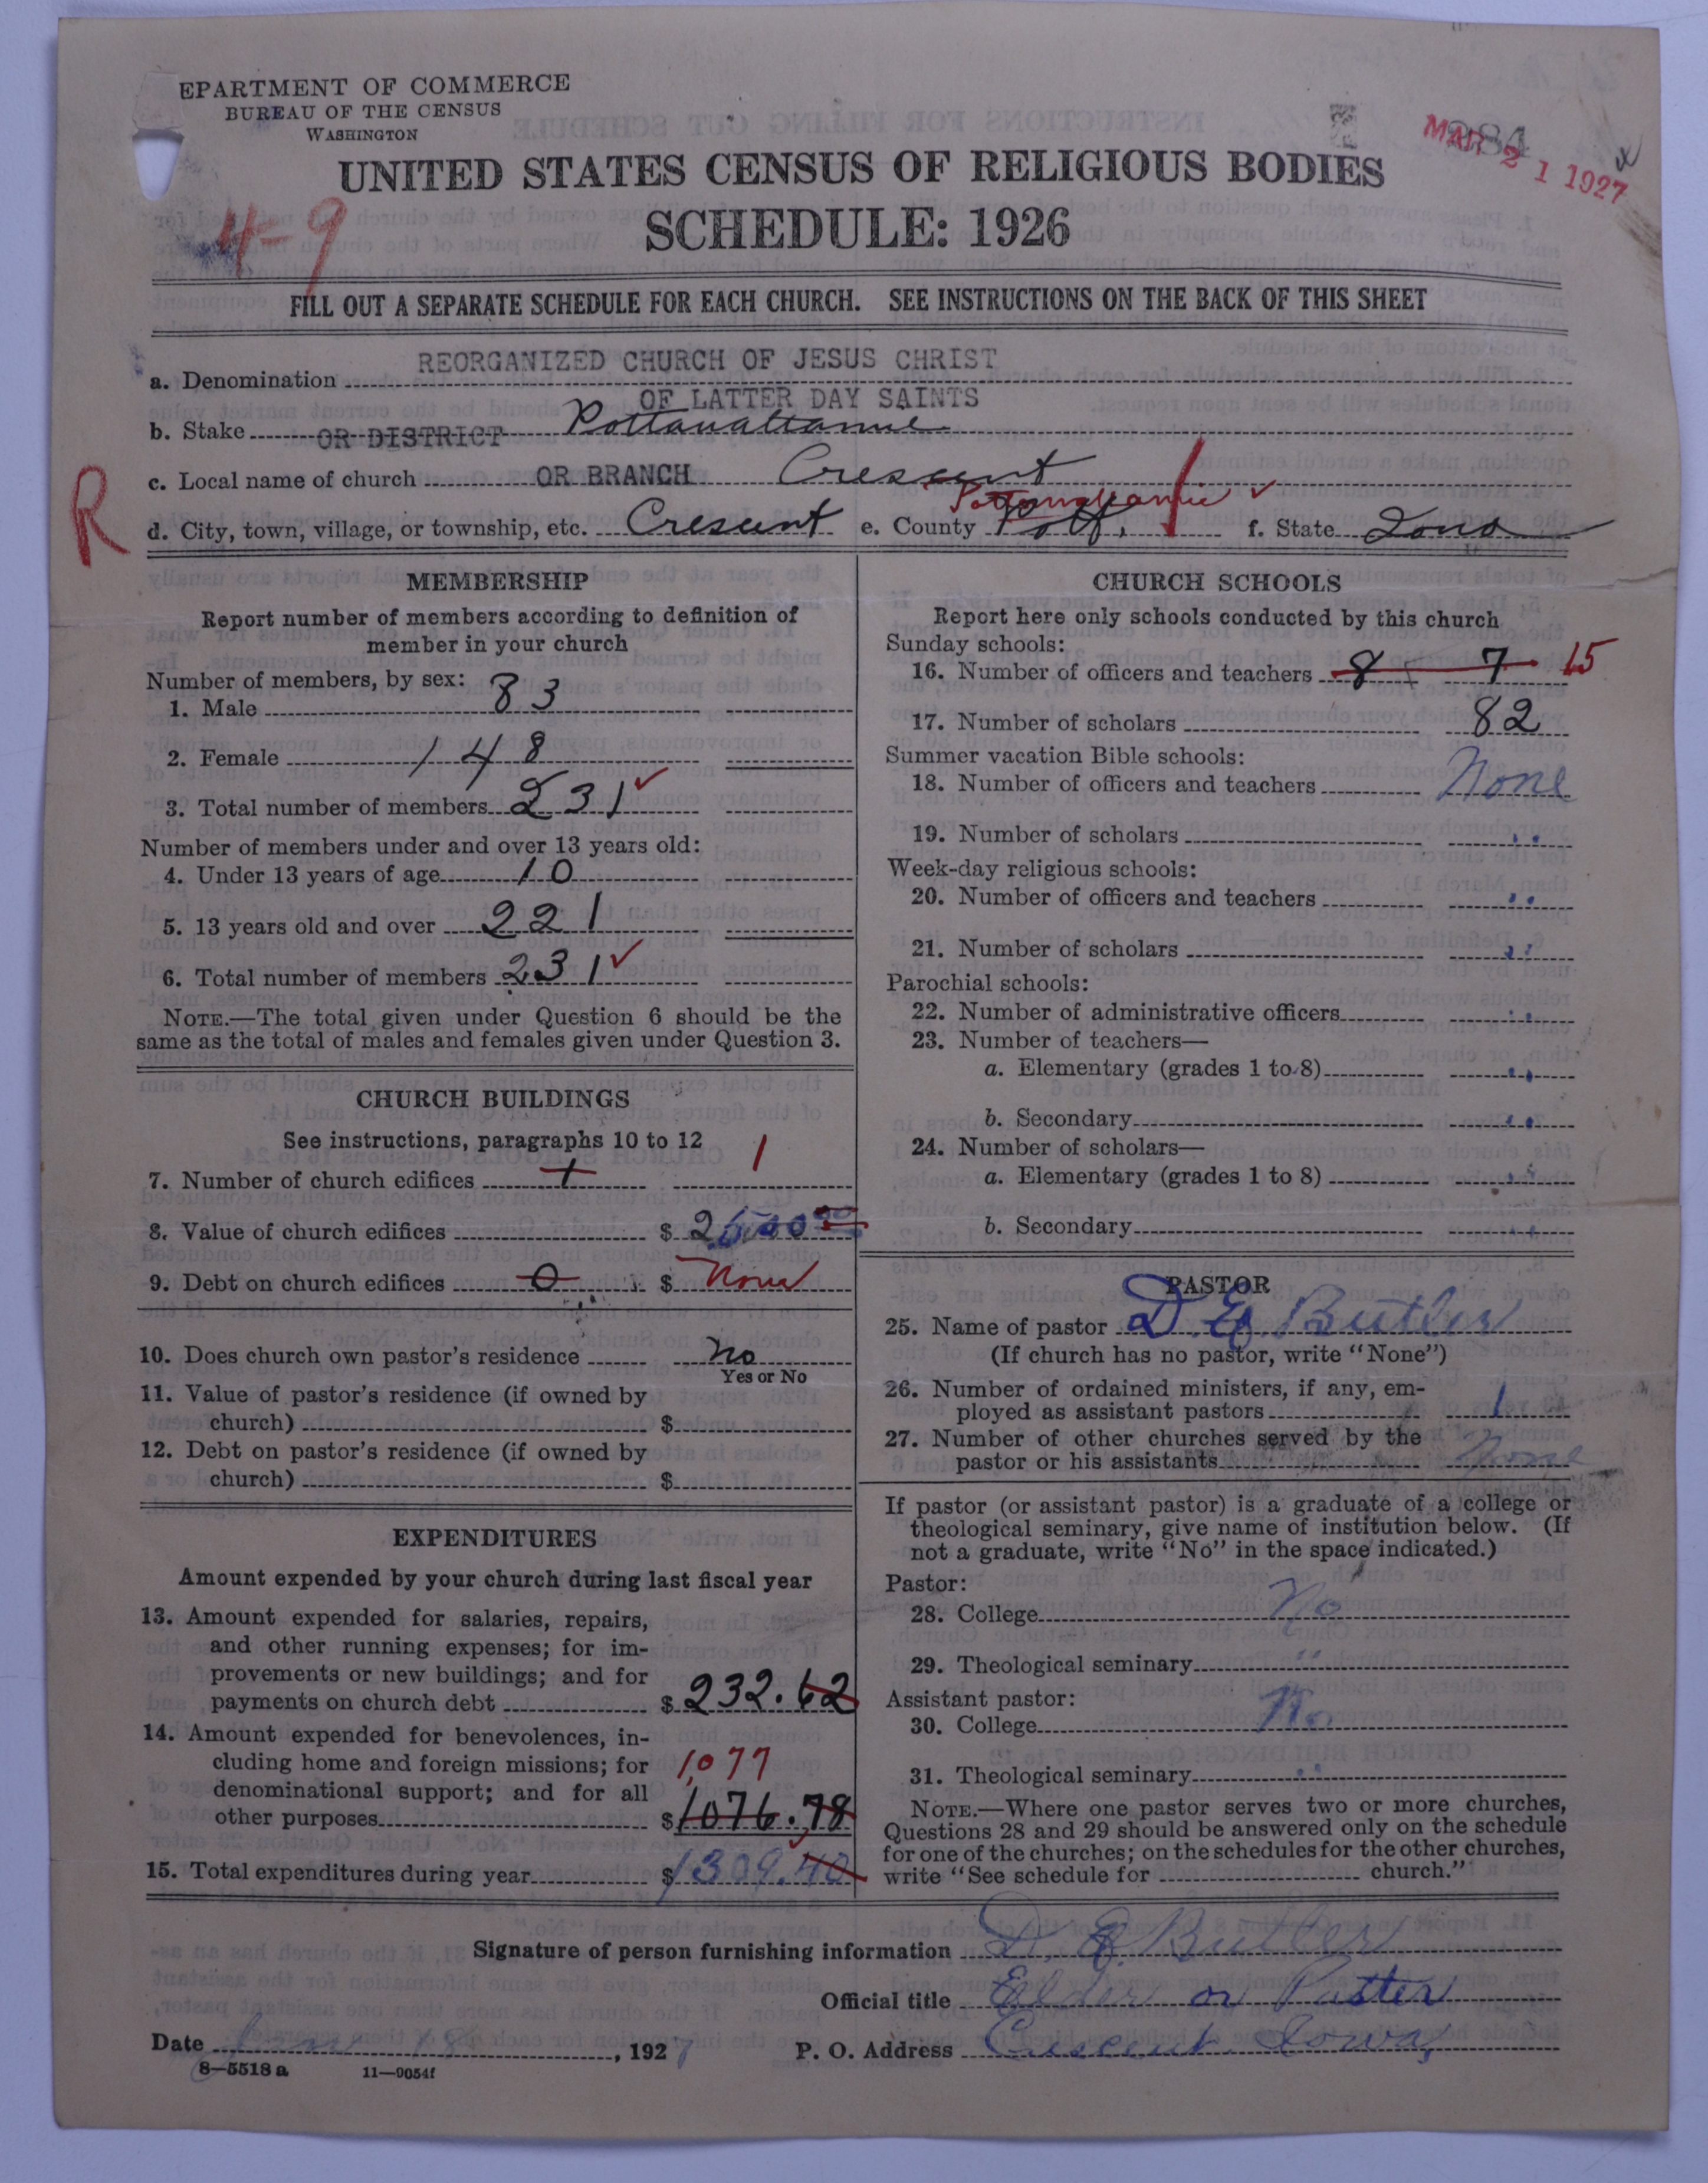 EPARTMENT OF COMMERCE
BUREAU OF THE CENSUS
WASHINGTON
MAR 21 1927
UNITED STATES CENSUS OF RELIGIOUS BODIES
4-9
SCHEDULE: 1926
FILL OUT A SEPARATE SCHEDULE FOR EACH CHURCH. SEE INSTRUCTIONS ON THE BACK OF THIS SHEET
REORGANIZED CHURCH OF JESUS CHRIST
a. Denomination
OF LATTER DAY SAINTS
b. Stake OR DISTRICT Pottawattamie
R
c. Local name of church OR BRANCH Crescent
Pottawattamie ✓
d. City, town, village, or township, etc. Crescent e. County Pott. f. State Iowa
MEMBERSHIP
Report number of members according to definition of
member in your church
Number of members, by sex:
1. Male 83
2. Female 148
3. Total number of members 231 ✓
Number of members under and over 13 years old:
4. Under 13 years of age 10
5. 13 years old and over 221
6. Total number of members 231 ✓
NOTE.—The total given under Question 6 should be the
same as the total of males and females given under Question 3.
CHURCH BUILDINGS
See instructions, paragraphs 10 to 12
7. Number of church edifices 1 1
8. Value of church edifices $ 2500 00
9. Debt on church edifices 0 $ None
10. Does church own pastor's residence no
Yes or No
11. Value of pastor's residence (if owned by
church) $
12. Debt on pastor's residence (if owned by
church) $
EXPENDITURES
Amount expended by your church during last fiscal year
13. Amount expended for salaries, repairs,
and other running expenses; for im-
provements or new buildings; and for
payments on church debt $ 232.62
14. Amount expended for benevolences, in-
cluding home and foreign missions; for 1,077
denominational support; and for all
other purposes $ 1076.78
15. Total expenditures during year $ 1309.40
CHURCH SCHOOLS
Report here only schools conducted by this church
Sunday schools:
16. Number of officers and teachers 8 7 15
17. Number of scholars 82
Summer vacation Bible schools:
18. Number of officers and teachers None
19. Number of scholars "
Week-day religious schools:
20. Number of officers and teachers "
21. Number of scholars "
Parochial schools:
22. Number of administrative officers "
23. Number of teachers—
a. Elementary (grades 1 to 8) "
b. Secondary "
24. Number of scholars—
a. Elementary (grades 1 to 8) "
b. Secondary "
PASTOR
25. Name of pastor D. E. Butler
(If church has no pastor, write "None")
26. Number of ordained ministers, if any, em-
ployed as assistant pastors 1
27. Number of other churches served by the
pastor or his assistants None
If pastor (or assistant pastor) is a graduate of a college or
theological seminary, give name of institution below. (If
not a graduate, write "No" in the space indicated.)
Pastor:
28. College No
29. Theological seminary "
Assistant pastor:
30. College No
31. Theological seminary "
NOTE.—Where one pastor serves two or more churches,
Questions 28 and 29 should be answered only on the schedule
for one of the churches; on the schedules for the other churches,
write "See schedule for church."
Signature of person furnishing information D. E. Butler
Official title Elder or Paster
Date Jan 18, 1927 P. O. Address Crescent Iowa,
8—5518 a 11—9054f